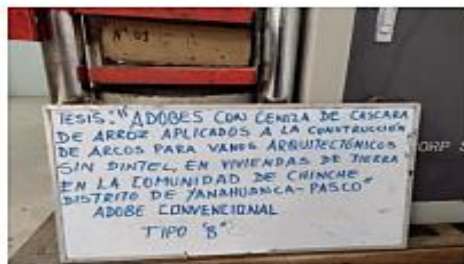 Nº 01
TESIS: "ADOBES CON CENIZA DE CASCARA
DE ARROZ APLICADOS A LA CONSTRUCCIÓN
DE ARCOS PARA VANOS ARQUITECTÓNICOS
SIN DINTEL, EN VIVIENDAS DE TIERRA
EN LA COMUNIDAD DE CHINCHE
DISTRITO DE YANAHUANCA-PASCO"
ADOBE CONVENCIONAL
TIPO "B"
ORP